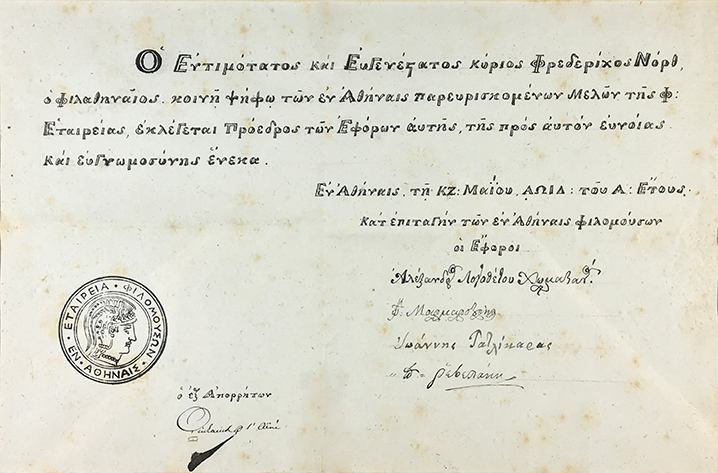 Ὁ Ἐντιμότατος καὶ Εὐγενέςατος κύριος Φρεδερῖχος Νόρθ,
ὁ φιλαθηναῖος. κοινῇ ψήφῳ τῶν ἐν Ἀθήναις παρευρισκομένων Μελῶν τῆς φ:
Ἑταιρείας, ἐκλέγεται Πρόεδρος τῶν Ἐφόρων αὐτῆς, τῆς πρὸς αὐτὸν εὐνοίας
καὶ εὐγνωμοσύνης ἕνεκα.
Ἐν Ἀθήναις, τῇ ΚΖ: Μαΐου, ΑΩΙΔ: τοῦ Α: Ἔτους.
Κατ ἐπιταγὴν τῶν ἐν Ἀθήναις φιλομούσων
οἱ Ἔφοροι
Ἀλέξανδρος Λογοθέτου
Φ. Μαρμαροτούρης
Ἰωάννης
ΕΤΑΙΡΕΙΑ · ΦΙΛΟΜΟΥΣΩΝ
· ΕΝ · ΑΘΗΝΑΙΣ
ὁ ἐξ Ἀπορρήτων